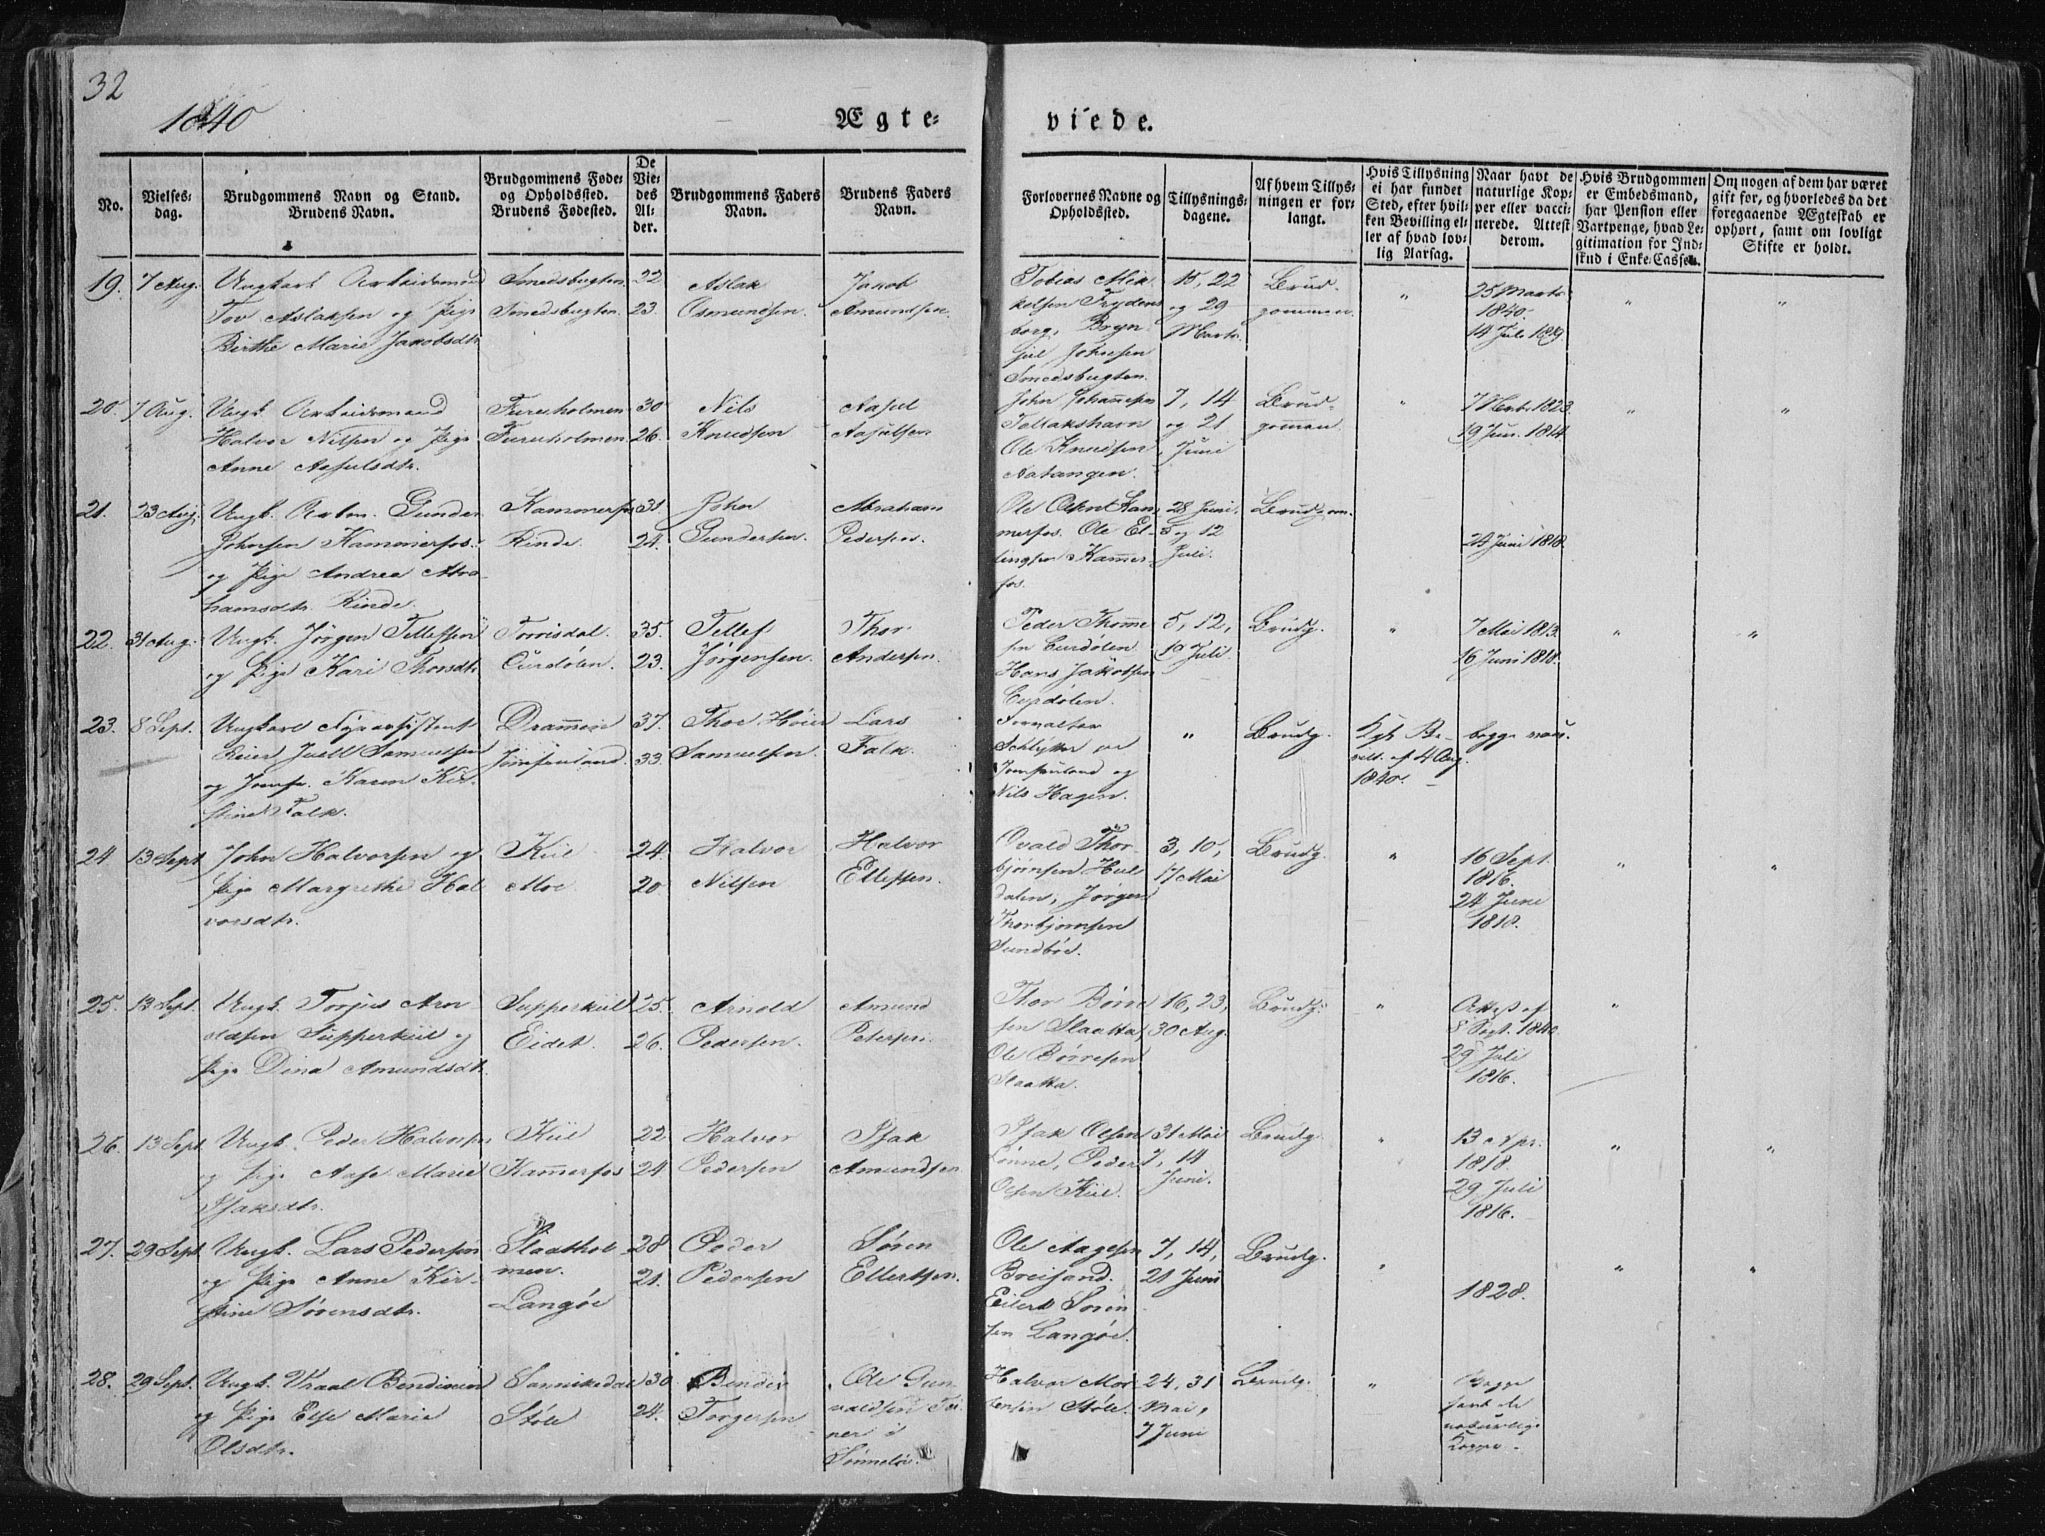 32
1840
Ægte-
viede.
No.
Vielses-
dag.
Brudgommens Navn og Stand.
Brudens Navn.
Brudgommens Føde-
og Opholdssted.
Brudens Fødested.
De
Vie-
des
Al-
der.
Brudgommens Faders
Navn.
Brudens Faders
Navn.
Forlovernes Navne og
Opholdssted.
Tillysnings-
dagene.
Af hvem Tillys-
ningen er for-
langt.
Hvis Tillysning
ei har fundet
Sted, efter hvil-
ken Bevilling el-
ler af hvad lov-
lig Aarsag.
Naar havt de
naturlige Kop-
per eller vacci-
nerede. Attest
derom.
Hvis Brudgommen
er Embedsmand,
har Pension eller
Vartpenge, hvad Le-
gitimation for Ind-
skud i Enke-Cassen.
Om nogen af dem har været
gift før, og hvorledes da det
foregaaende Ægteskab er
ophørt, samt om lovligt
Skifte er holdt.
19. 7 Aug. Ungkarl Arbeidsmand
Tov Aslaksen og Pige
Birthe Marie Jakobsdtr.
Smedsbugten
Smedsbugten
22
23.
Aslak
Osmundsen.
Jakob
Amundsen.
Tobias Mik-
kelsen Frydens-
borg, Bryn-
jul Johnsen
Smedsbugten.
15, 22
og 29
Marts
Brud-
gommen.
"
25 Marts
1840.
14 Juli 1819
"
"
20. 7 Aug. Ungk. Arbeidsmand
Halvor Nilsen og Pige
Anne Asjulsdtr.
Fureholmen
Fureholmen
30
26.
Nils
Knudsen
Aasul
Aasulsen
John Johannesen
Tellakshavn
Ole Knudsen
Natangen.
7, 14
og 21
Juni
Brud-
gommen.
"
7 1823.
19 Jun. 1814
"
"
21. 23 Aug. Ungk. Arbm. Gunder
Johnsen Kammerfos.
og Pige Andrea Abra-
hamsdtr. Rinde.
Kammerfos
Rinde.
31
24.
John
Gundersen.
Abraham
Pedersen.
Ole Kam-
merfos. Ole El-
lingsen Kammer-
fos.
28 Juni.
5 og 12
Juli.
Brudgom.
24 Juni 1818.
22. 31 Aug. Ungk. Jørgen Tellefsen
og Pige Kari Thorsdtr.
Torrisdal.
Eurdølen.
35.
23.
Tellef
Jørgensen.
Thor
Andersen.
Peder Thomme-
sen Eurdølen
Hans Jakobsen
Eurdølen.
5, 12,
19 Juli
Brudg.
"
7 Mai 1813.
16 Juni 1818.
"
"
23. 8 Sept. Ungkarl
Juell Samuelsen
og Jomfr. Karen Kir-
stine Falk.
Drammen
Jomfruland.
37.
33.
Thor Høier
Samuelsen.
Lars
Falk.
Forvalter
Schlytter paa
Jomfruland og
Nils Hagen.
"
Brudg.
Kgl. Be-
vill. af 4 Aug.
1840.
begge vac.
24 13 Sept John Halvorsen og
Pige Margrethe Hal-
vorsdtr.
Kiil
Moe
24.
20
Halvor
Nilsen
Halvor
Ellefsen.
Osvald Thor-
bjørnsen Hul-
dalen, Jørgen
Thorbjørnsen
Sundbøe.
3, 10,
17 Mai
Brudg.
"
16 Sept.
1816.
24 Juni
1818.
"
"
25. 13 Sept. Ungk. Torjus Arn-
oldsen Supperkiil og
Pige Dina Amundsdtr.
Supperkiil
Eidet.
25.
26.
Arnold
Pedersen.
Amund
Petersen.
Thor Børre-
sen Slaatta,
Ole Børresen
Slaatta.
16, 23,
30 Aug.
Brudg.
"
Attest af
8 Sept. 1840.
29 Juli
1816.
"
26. 13 Sept Ungk. Peder Halvorsen
og Pige Aase Marie
Isaksdtr.
Kiil
Kammerfos
22
24
Halvor
Pedersen
Isak
Amundsen.
Isak Olsen
Lønne, Peder
Olsen Kiil.
31 Mai
7, 14
Juni.
Brudg.
"
13 Apr.
1818.
29 Juli
1816.
"
"
27. 29 Sept. Ungk. Lars Pedersen
og Pige Anne Kir-
stine Sørensdtr.
Slaathol-
men.
Langøe
28
21.
Peder
Pedersen
Søren
Ellertsen.
Ole Aagesen
Breisand.
Eilert Søren-
sen Langøe.
7, 14,
21 Juni
Brudg.
"
1828.
"
"
28. 29 Sept. Ungk. Wraal Bendixen
og Pige Else Marie
Olsdtr.
Sannikedal
Støle
30
24.
Bendix
Torgersen
Ole Gun-
valdsen
i
Halvor Mor-
tensen Støle.
24, 31
Mai,
7 Juni
Brudg.
"
Begge
havt de
naturlige
Kopper.